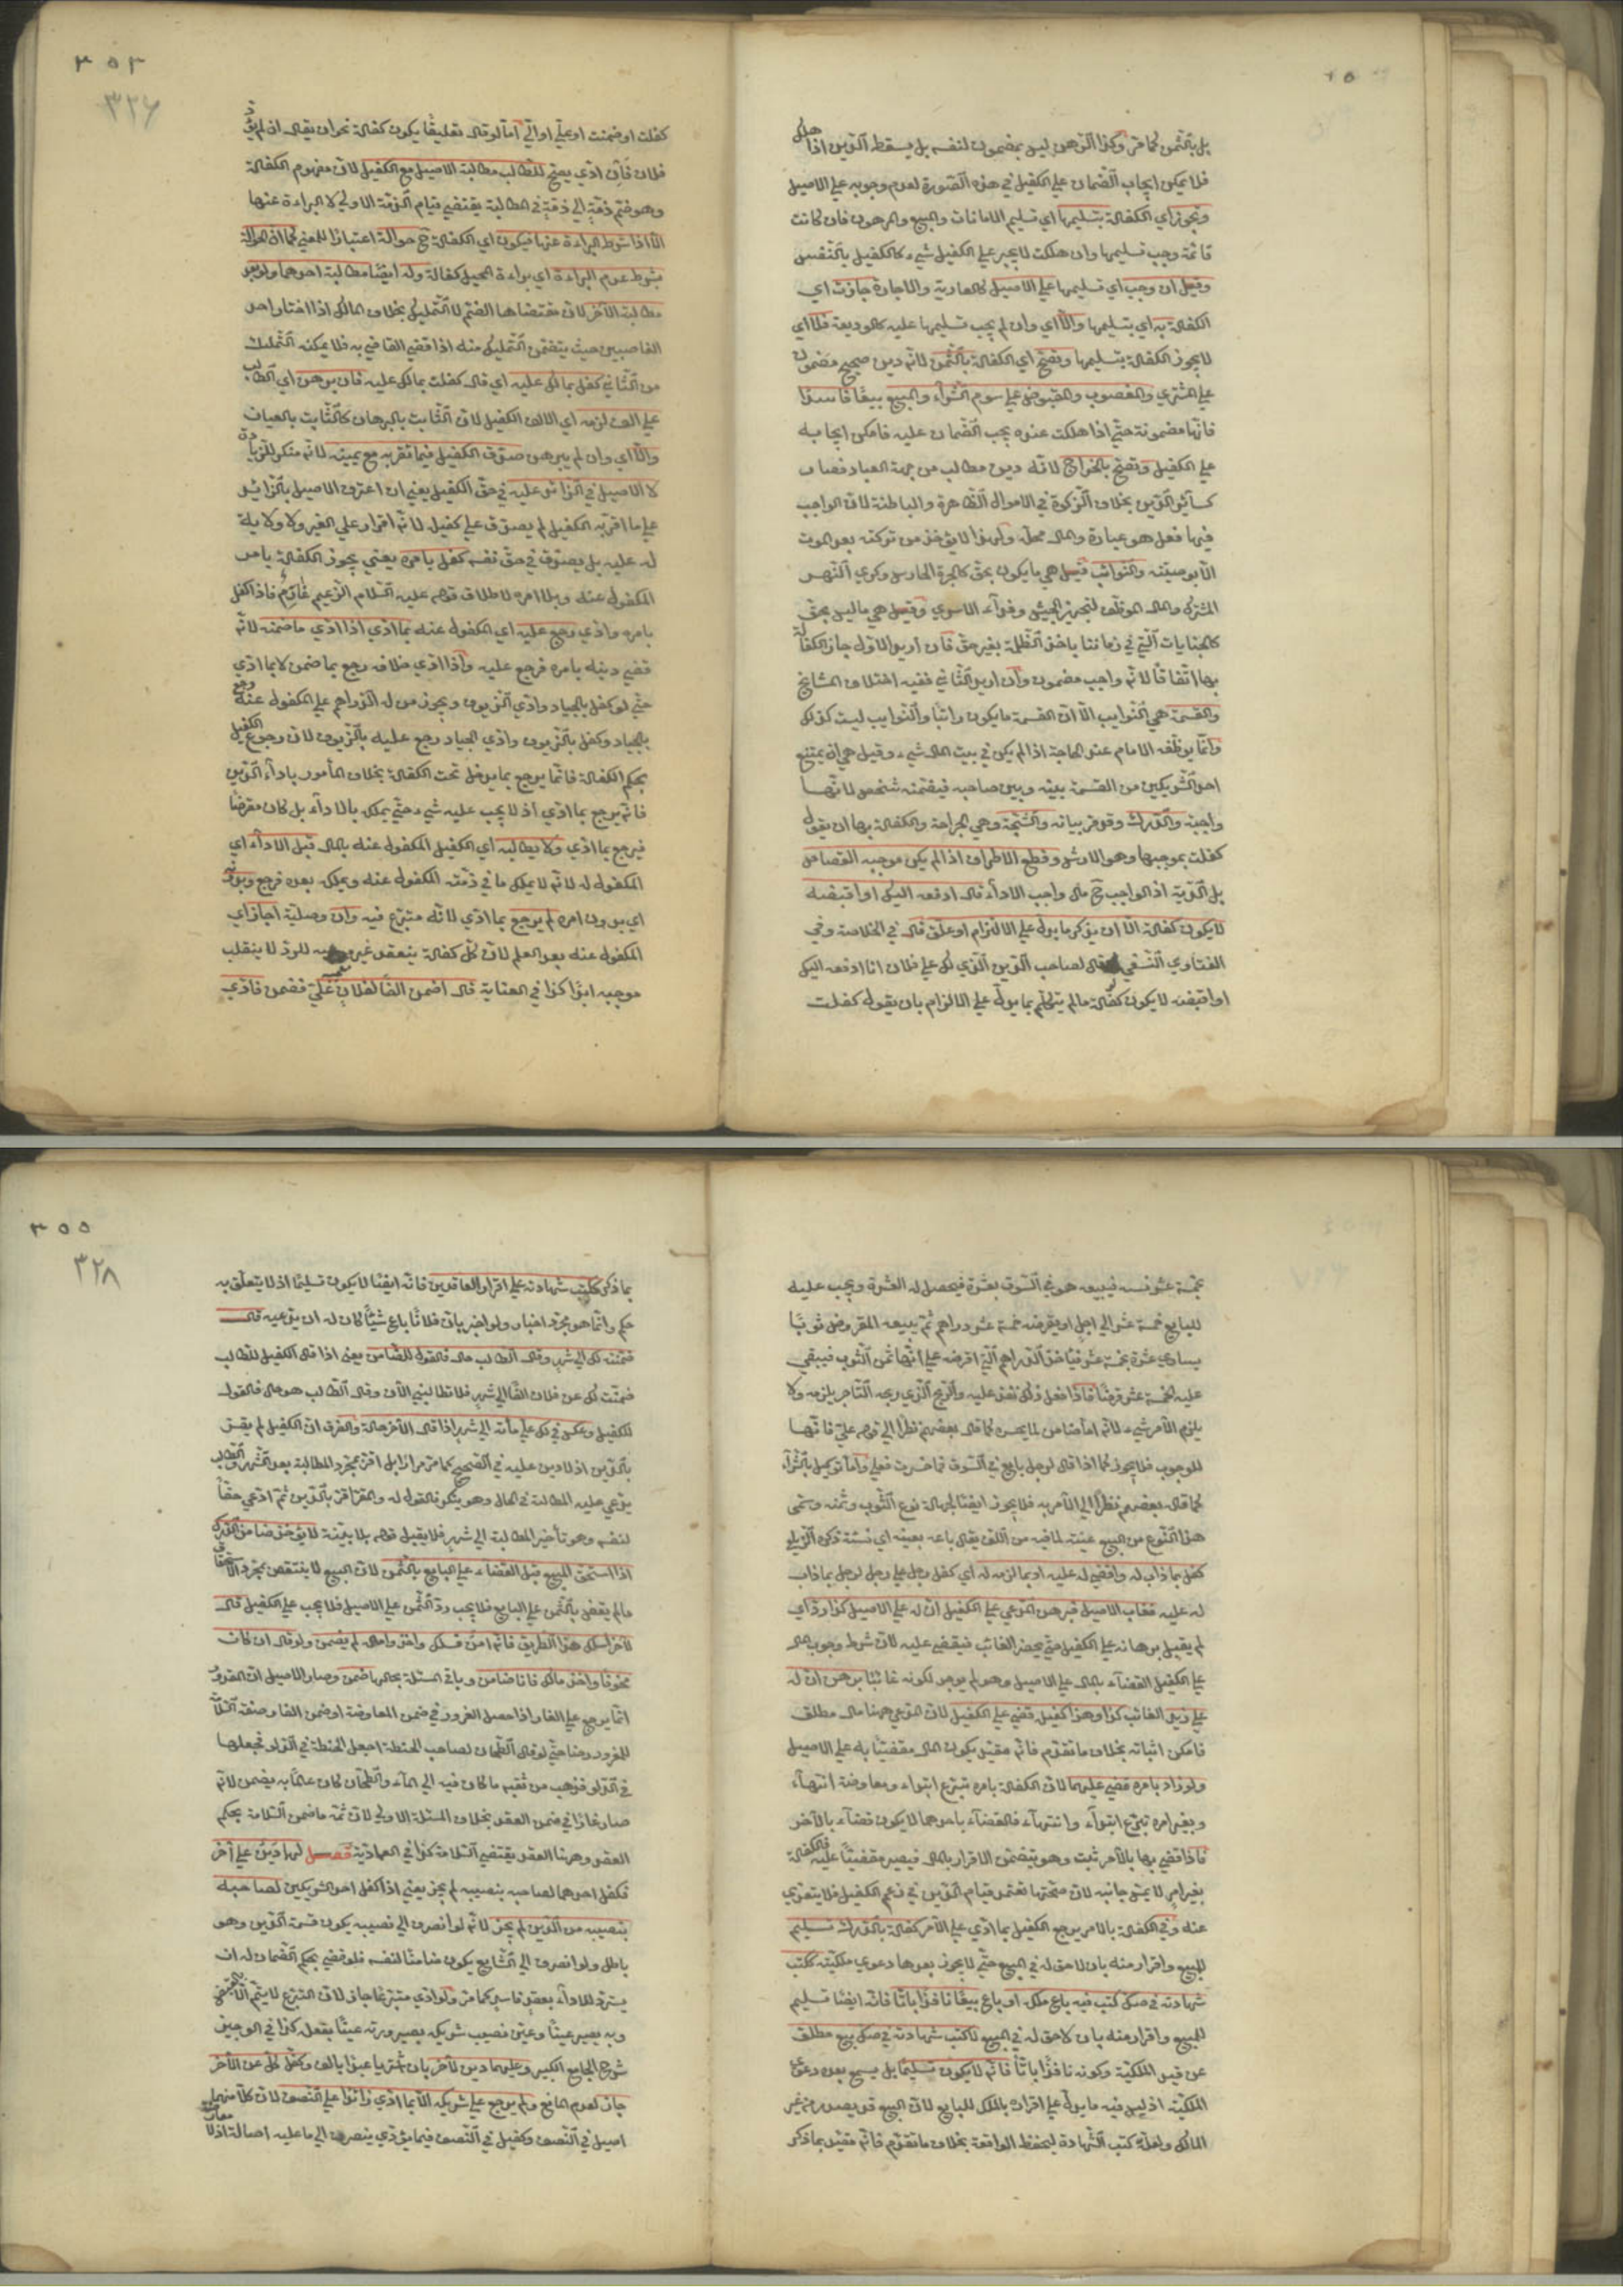 بل بالثمن كما مر وكذا الرهن ليس بمضمون لنفسه بل يسقط الدين اذا هلك
فلا يمكن ايجاب الضمان على الكفيل في هذه الصورة لعدم وجوبه على الاصيل
وتجوز اي الكفالة بتسليمها اي تسليم الامانات والمبيع والمرهون فان كانت
قائمة وجب تسليمها وان هلكت لا يجب على الكفيل شيء كالكفيل بالنفس
وقيل ان وجب اي تسليمها على الاصيل كالعارية والاجارة جازت اي
الكفالة به اي بتسليمها والا اي وان لم يجب تسليمها عليه كالوديعة فلا اي
لا يجوز الكفالة بتسليمها وتصح اي الكفالة بالثمن لانه دين صحيح مضمون
على المشتري والمغصوب والمقبوض على سوم الشراء والمبيع بيعا فاسدا
فانها مضمونة حتى اذا هلكت عنده يجب الضمان عليه فامكن ايجابه
على الكفيل وتصح بالخراج لانه دين مطالب من جهة العباد فصار
كسائر الديون بخلاف الزكوة في الاموال الظاهرة والباطنة لان الواجب
فيها فعل هو عبادة والمال محله ولهذا لا يؤخذ من تركته بعد الموت
الا بوصيته والنوائب قيل هي ما يكون بحق كاجرة الحارس وكري النهر
المشترك والمال الموظف لتجهيز الجيش وفداء الاسرى وقيل هي ما ليس بحق
كالجنايات التي في زماننا ياخذ الظلمة بغير حق فان اريد الاول جاز الكفالة
بها اتفاقا لانه واجب مضمون وان اريد الثاني ففيه اختلاف المشايخ
والقسمة هي النوايب الا ان القسمة ما يكون راتبا والنوايب ليست كذلك
وانما يوظفه الامام عند الحاجة اذا لم يكن في بيت المال شيء وقيل هي ان يمتنع
احد الشريكين من القسمة بينه وبين صاحبه فيضمنه شخص لانها
واجبة والدرك وقد مر بيانه والشجة وهي الجراحة والكفالة بها ان يقول
كفلت بموجبها وهو الارش وقطع الاطراف اذا لم يكن موجبه القصاص
بل الدية اذ الواجب ح مال واجب الاداء قال ادفعه اليك او اقبضه
لا يكون كفالة الا ان يذكر ما يدل على الالتزام او علق قال في الخلاصة وفي
الفتاوي النسفي قال لصاحب الدين الذي لك على فلان انا ادفعه اليك
او اقبضه لا يكون كفالة ما لم يتكلم بما يدل على الالزام بان يقول كفلت
٣٥٣
٣٢٦
كفلت او ضمنت او علي او الي اما لو قال تعليقا يكون كفالة نحو ان يقال ان لم يؤد
فلان فانا ادي يصح للطالب مطالبة الاصيل مع الكفيل لان مفهوم الكفالة
وهو ضم ذمة الى ذمة في المطالبة يقتضي قيام الذمة الاولى لا البراءة عنها
الا اذا شرط البراءة عنها فيكون اي الكفالة ح حوالة اعتبارا للمعنى كما ان الحوالة
بشرط عدم البراءة اي براءة المحيل كفالة وله ايضا مطالبة احدهما ولو بعد
مطالبة الآخر لان مقتضاها الضم لا التمليك بخلاف المالك اذا اختار احد
الغاصبين حيث يتضمن التمليك منه اذا قضى القاضي به فلا يمكنه التمليك
من الثاني كفل بما لك عليه اي قال كفلت بما لك عليه فان برهن اي الطالب
على الف لزمه اي الالف الكفيل لان الثابت بالبرهان كالثابت بالعيان
والا اي وان لم يبرهن صدق الكفيل فيما يقر به مع يمينه لانه منكر للزيادة
لا الاصيل في الزائد عليه في حق الكفيل يعني ان اعترف الاصيل بالزائد
على ما اقر به الكفيل لم يصدق على كفيل لانه اقرار على الغير ولا ولاية
له عليه بل يصدق في حق نفسه كفل بامره يعني يجوز الكفالة بامر
المكفول عنه وبلا امره لاطلاق قوله عليه السلام الزعيم غارم فاذا كفل
بامره وادي رجع عليه اي المكفول عنه بما ادي اذا ادي ما ضمنه لانه
قضى دينه بامره فرجع عليه واذا ادي خلافه رجع بما ضمن لا بما ادي
حتى لو كفل بالجياد وادي الزيوف وتجوز من له الدراهم على المكفول عنه رجع
بالجياد وكفل بالزيوف وادي الجياد رجع عليه بالزيوف لان رجوع الكفيل
بحكم الكفالة فانما يرجع بما يدخل تحت الكفالة بخلاف المأمور باداء الدين
فانه يرجع بما ادي اذ لا يجب عليه شيء حتى يملك بالاداء بل كان مقرضا
فيرجع بما ادي ولا يطالبه اي الكفيل المكفول عنه بالمال قبل الاداء اي
المكفول له لانه لا يملك ما في ذمة المكفول عنه ويملك بعده فرجع وبدونه
اي بدون امره لم يرجع بما ادي لانه متبرع فيه وان وصلية اجاز اي
المكفول عنه بعد العلم لان كل كفالة ينعقد غير موجبه للرد لا ينقلب
موجبه ابدا كذا في العناية قال اضمن الفا لفلان علي فضمن فادي
بخمسة عشر نسيئة فيبيعه هو في السوق بعشرة فيحصل له العشرة ويجب عليه
للبايع خمسة عشر الى اجل او يقرضه خمسة عشر دراهم ثم يبيعه المقروض ثوبا
يساوي عشرة بخمسة عشر فياخذ الدراهم التي اقرضه على انها ثمن الثوب فيبقى
عليه الخمسة عشر قرضا فاذا فعل ذلك نفذ عليه والربح الذي ربحه التاجر يلزمه ولا
يلزم الآمر شيء لانه اما ضامن لما يخسر كما قال بعضهم نظرا الى قوله علي فانها
للوجوب فلا يجوز كما اذا قال لرجل بايع في السوق فما خسرت فعلي واما توكيل بالشراء
كما قال بعضهم نظرا الى الآمر به فلا يجوز ايضا لجهالة نوع الثوب وثمنه وسمي
هذا النوع من البيع عينة لما فيه من يقال باعه بعينه اي نسئة ذكره الزيلعي
كفل بما ذاب له او قضي له عليه او بما لزمه له اي كفل رجل على رجل لرجل بما ذاب
له عليه فغاب الاصيل فبرهن المدعي على الكفيل ان له على الاصيل كذا رد اي
لم يقبل برهانه على الكفيل حتى يحضر الغائب فيقضي عليه لان شرط وجوب المال
على الكفيل القضاء بالمال على الاصيل وهو لم يوجد لكونه غائبا برهن ان له
على زيد الغائب كذا وهذا كفيل قضي على الكفيل لان المدعي ههنا مال مطلق
فامكن اثباته بخلاف ما تقدم فانه مقيد يكون المال مقضيا به على الاصيل
ولو زاد بامره قضي عليهما لان الكفالة بامره تبرع ابتداء ومعاوضة انتهاء
وبغير امره تبرع ابتداء وانتهاء فالقضاء باحدهما لا يكون قضاء بالآخر
فاذا قضي بها بالامر ثبت وهو يتضمن الاقرار بالمال فيصير مقضيا عليه فالكفالة
بغير امر لا يمس جانبه لان صحتها تعتمد قيام الدين في زعم الكفيل فلا يتعدى
عنه وفي الكفالة بالامر يرجع الكفيل بما ادي على الآمر كفالة بالدرك تسليم
للمبيع واقرار منه بان لا حق له في المبيع حتى لا يجوز بعدها دعوى ملكيته ككتب
شهادته في صك كتب فيه باع ملكه او باع بيعا نافذا باتا فانه ايضا تسليم
للمبيع واقرار منه بان لا حق له في المبيع لا كتب شهادته في صك بيع مطلق
عن قيد الملكية وكونه نافذا باتا فانه لا يكون تسليما بل يسمع بعده دعوى
الملكية اذ ليس فيه ما يدل على اقراره بالملك للبايع لان البيع قد يصدر من غير
المالك ولعله كتب الشهادة ليحفظ الواقعة بخلاف ما تقدم فانه مقيد بما ذكر
٣٥٥
٣٢٨
بما ذكر ككتب شهادته على اقرار العاقدين فانه ايضا لا يكون تسليما اذ لا يتعلق به
حكم وانما هو مجرد اخبار ولو اخبر بان فلانا باع شيئا كان له ان يدعيه قال
ضمنته لك الى شهر وقال الطالب حال فالقول للضامن يعني اذا قال الكفيل للطالب
ضمنت لك عن فلان الفا الى شهر فلا تطالبني الآن وقال الطالب هو حال فالقول
للكفيل وعكس في لك علي مأة الى شهر اذا قال الآخر حالة والفرق ان الكفيل لم يقر
بالدين اذ لا دين عليه في الصحيح كما مر مرارا بل اقر بمجرد المطالبة بعد الشهر والطالب
يدعي عليه المطالبة في الحال وهو ينكر فالقول له والمقر اقر بالدين ثم ادعي حقا
لنفسه وهو تأخير المطالبة الى شهر فلا يقبل قوله بلا بينة لا يؤخذ ضامن الدرك
اذا استحق المبيع قبل القضاء على البايع بالثمن لان البيع لا ينتقض بمجرد الاستحقاق
ما لم يقض بالثمن على البايع فلا يجب رد الثمن على الاصيل فلا يجب على الكفيل قال
لآخر اسلك هذا الطريق فانه امن فسلك واخذ واماله لم يضمن ولو قال ان كان
مخوفا واخذ مالك فانا ضامن وباقي المسئلة بحالها ضمن وصار الاصيل ان المغرور
انما يرجع على الغار اذا حصل الغرور في ضمن المعاوضة او ضمن الغار صفة السلامة
للمغرور رضا حتى لو قال الطحان لصاحب الحنطة اجعل الحنطة في الدلو فجعلها
في الدلو فذهب من ثقبه ما كان فيه الى الماء والطحان كان عالما به يضمن لانه
صار غارا في ضمن العقد بخلاف المسئلة الاولى لان ثمة ما ضمن السلامة بحكم
العقد وههنا العقد يقتضي السلامة كذا في العمادية فصل لهما دين على آخر
فكفل احدهما لصاحبه بنصيبه لم يجز يعني اذا كفل احد الشريكين لصاحبه
بنصيبه من الدين لم يجز لانه لو انصرف الى نصيبه يكون قسمة الدين وهو
باطل ولو انصرف الى الشايع يكون ضامنا لنفسه فلو قضي بحكم الضمان له ان
يسترد للاداء بعقد فاسد كما مر ولو ادي متبرعا جاز لان التبرع لا يتم الا بالقبض
وبه يصير عينا وعين نصيب شريكه بصيرورته عينا بفعل كذا في الوجيز
شرح الجامع الكبير وعليهما دين لآخر بان اشتريا عبدا بالف وكفل كل عن الآخر
جاز لعدم المانع ولم يرجع على شريكه الا بما ادي زائدا على النصف لان كلا منهما
اصيل في النصف وكفيل في النصف فيما يؤدي ينصرف الى ما عليه اصالة اذ لا